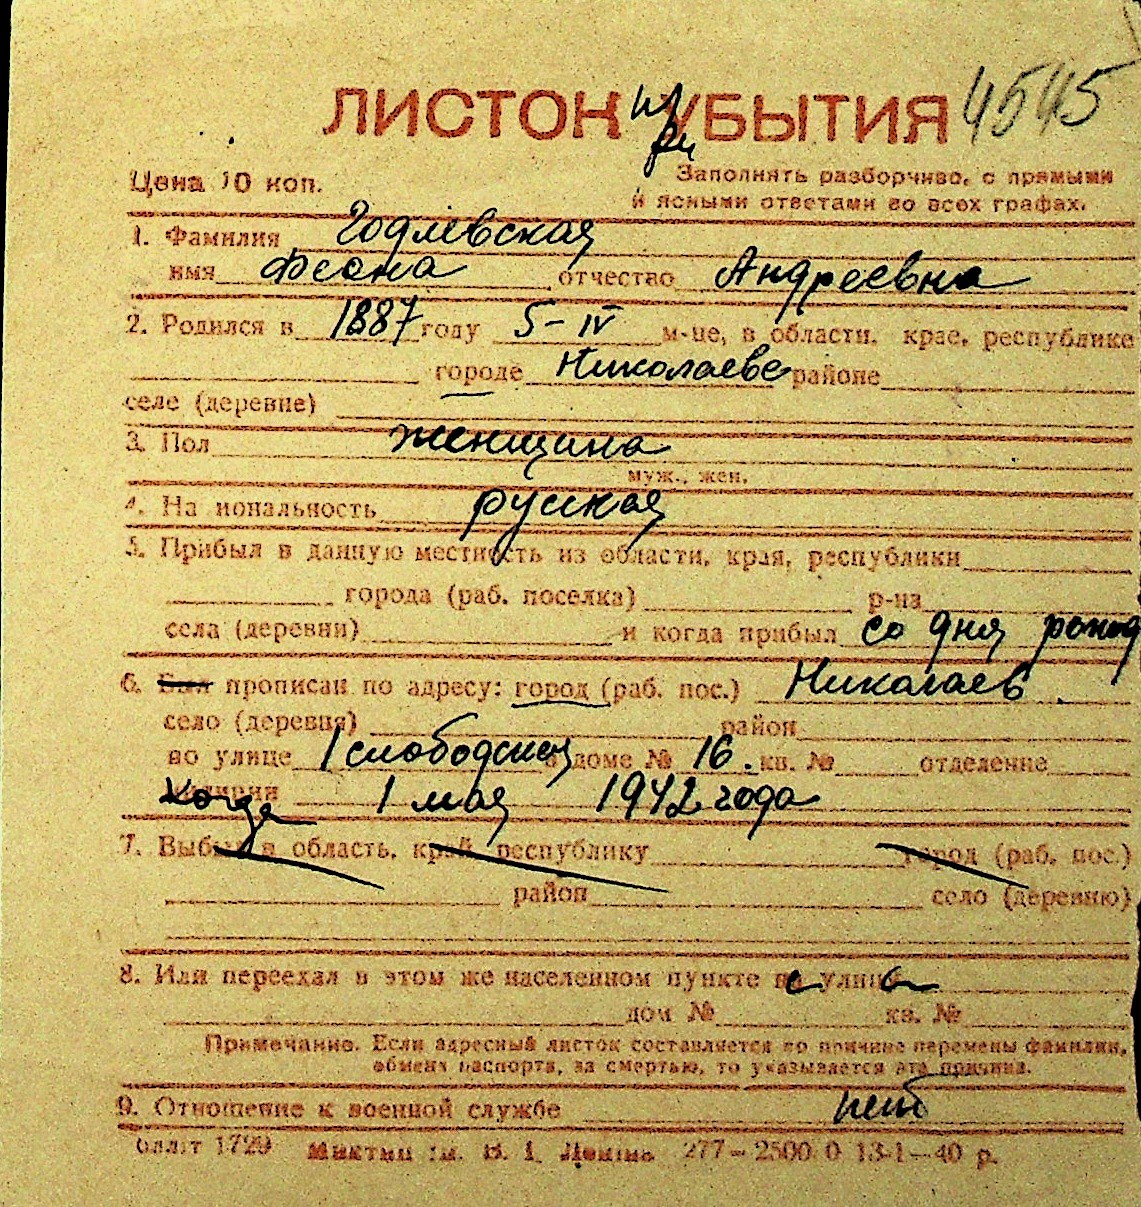 ЛИСТОК УБЫТИЯ 4545
при
Цена 10 коп. Заполнять разборчиво, с прямыми
и ясными ответами во всех графах.
1. Фамилия Годлевская
имя Феона отчество Андреевна
2. Родился в 1887 году 5-IV м-це, в области, крае, республике
городе Николаеве районе
селе (деревне)
3. Пол женщина
муж., жен.
4. На иональность русская
5. Прибыл в данную местность из области, края, республики
города (раб. поселка) р-на
села (деревни) и когда прибыл со дня рожд
6. Был прописан по адресу: город (раб. пос.) Николаев
село (деревня) район
по улице 1 слободская доме № 16. кв. № отделение
милиции когда 1 мая 1942 года
7. Выбыл в область, край республику город (раб. пос.)
район село (деревню)
8. Или переехал в этом же населенном пункте с улицы
дом № кв. №
Примечание. Если адресный листок составляется по причине перемены фамилии,
обмена паспорта, за смертью, то указывается эта причина.
9. Отношение к военной службе нет
1729 им. В. І. Леніна 277—2500 0 13-1—40 р.